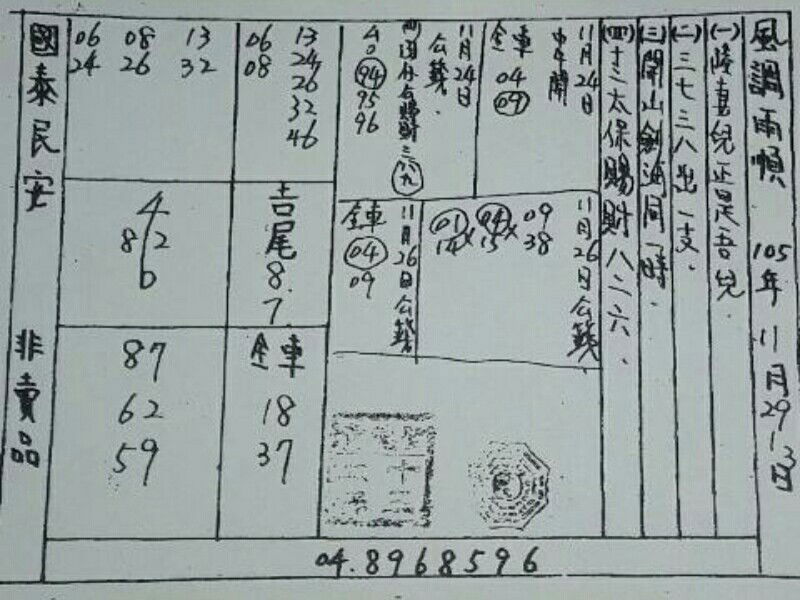 風調雨順 105年11月29-3日
(一) 隆喜兒正是吾兒.
(二) 三七三八出一支.
(三) 開山劍濟同一時.
(四) 十二太保賜財八二六.
11月24日
中午開
全車
04
09
11月24日
公籤.
40
94
95
96
11月26日公籤
09
38
04
15
01
14
11月26日公籤
全車
04
09
13
24
26
32
46
06
08
吉尾8.7
全車
18
37
06 08 13
24 26 32
4
8 2
0
87
62
59
國泰民安 非賣品
04.8968596